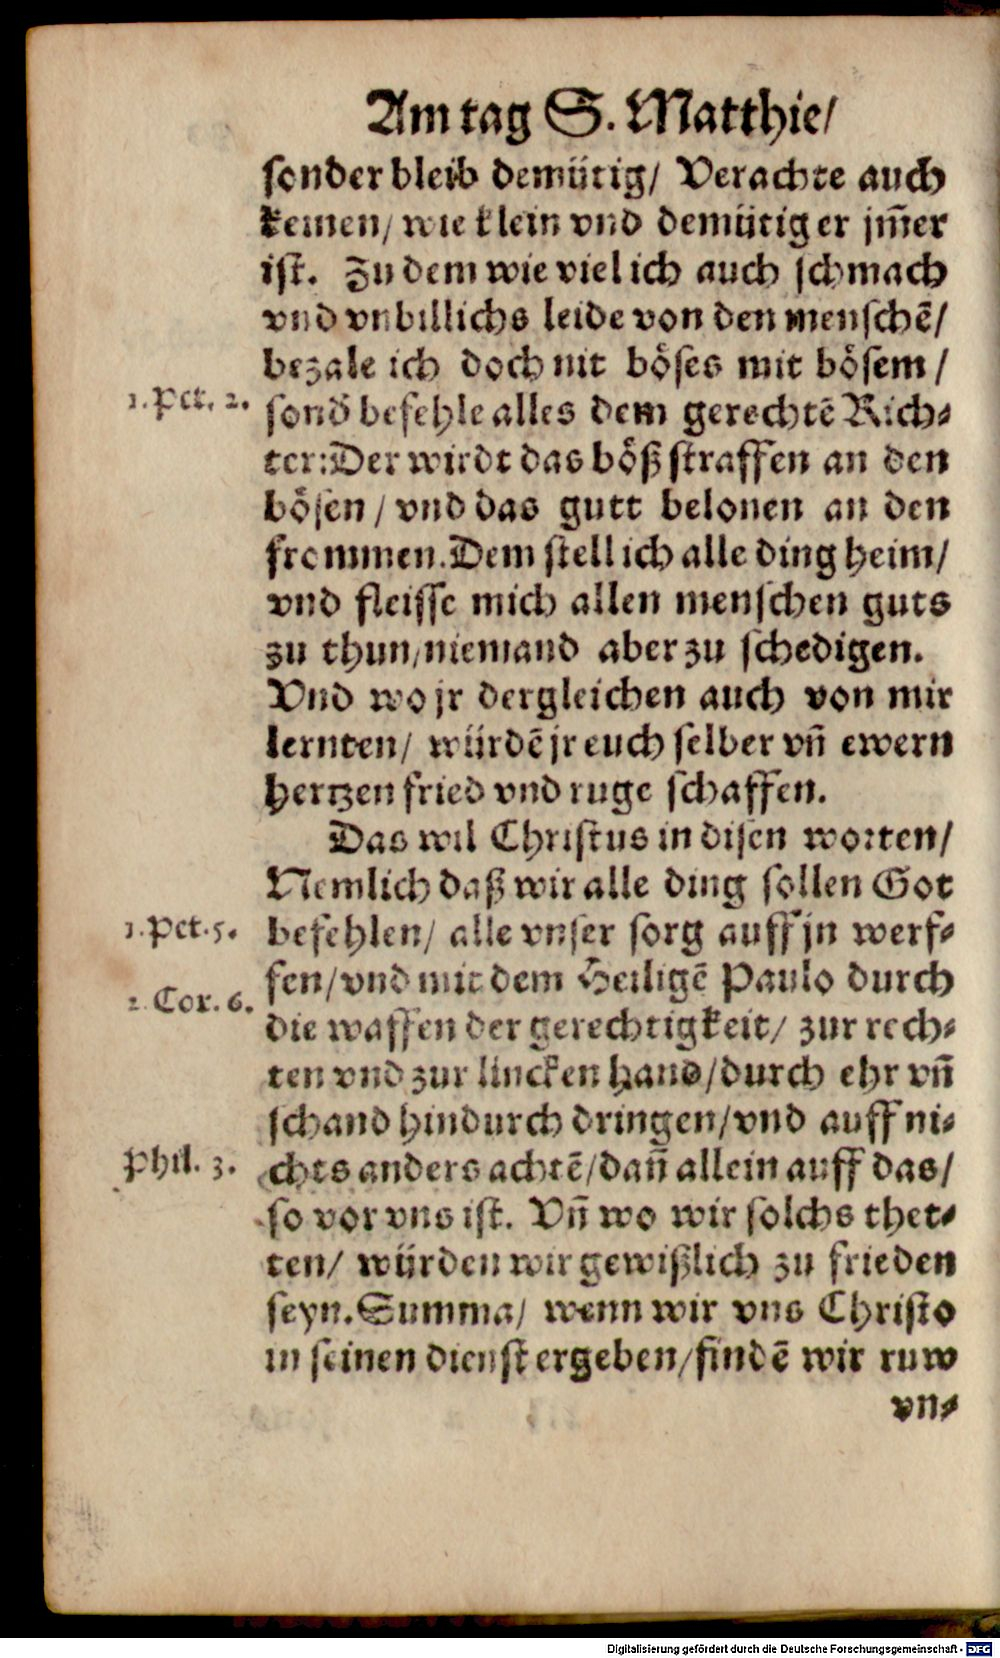 Am tag S. Matthie/
sonder bleib demütig/ Verachte auch
keinen/ wie klein vnd demütig er jm̃er
ist. Zu dem wie viel ich auch schmach
vnd vnbillichs leide von den menschẽ/
bezale ich doch nit böses mit bösem/
1. Pet. 2.
sond̃ befehle alles dem gerechtẽ Rich⸗
ter: Der wirdt das böß straffen an den
bösen/ vnd das gutt belonen an den
frommen. Dem stell ich alle ding heim/
vnd fleisse mich allen menschen guts
zu thun/ niemand aber zu schedigen.
Vnd wo jr dergleichen auch von mir
lernten/ würdẽ jr euch selber vñ ewern
hertzen fried vnd ruge schaffen.
Das wil Christus in disen worten/
Nemlich daß wir alle ding sollen Got
1. Pet. 5.
befehlen/ alle vnser sorg auff jn werf⸗
fen/ vnd mit dem Heiligẽ Paulo durch
2. Cor. 6.
die waffen der gerechtigkeit/ zur rech⸗
ten vnd zur lincken hand/ durch ehr vñ
schand hindurch dringen/ vnd auff ni⸗
Phil. 3.
chts anders achtẽ/ dañ allein auff das/
so vor vns ist. Vñ wo wir solchs thet⸗
ten/ würden wir gewißlich zu frieden
seyn. Summa/ wenn wir vns Christo
in seinen dienst ergeben/ findẽ wir ruw
vn⸗
Digitalisierung gefördert durch die Deutsche Forschungsgemeinschaft - DFG